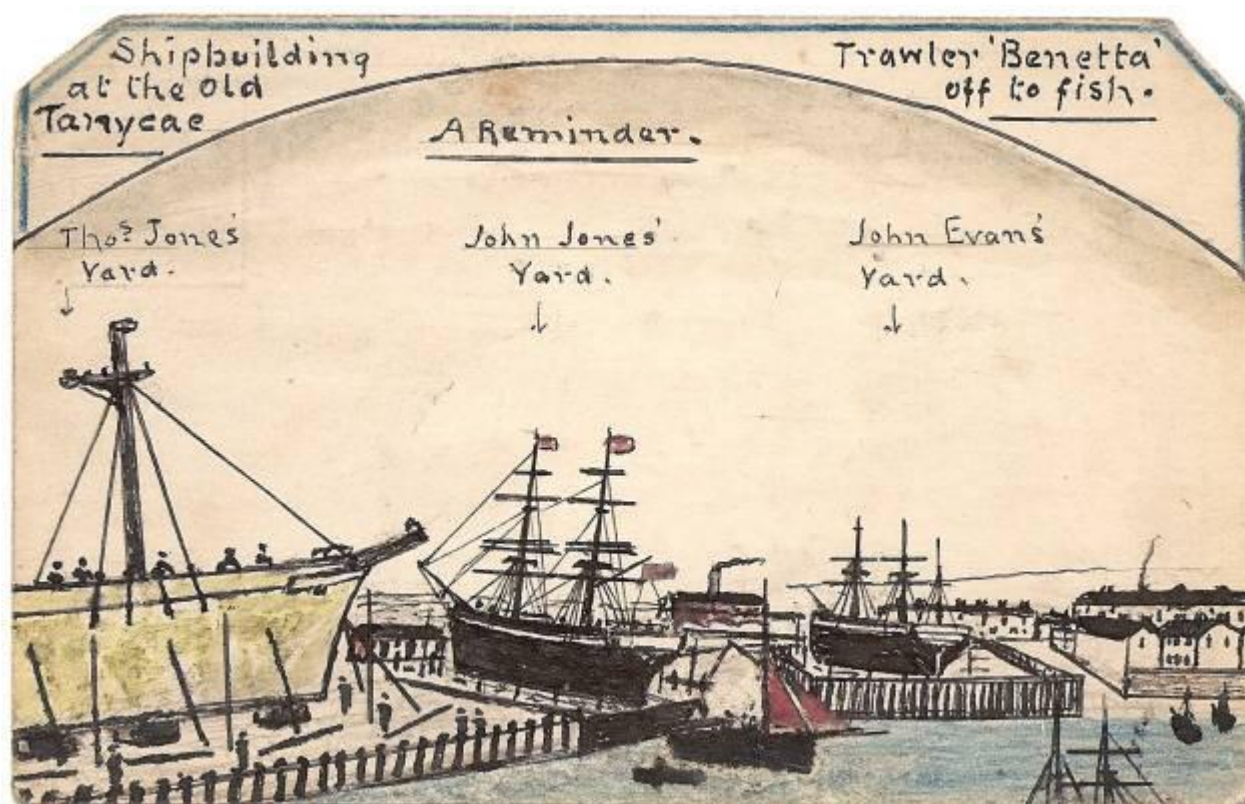 Shipbuilding
at the Old
Tanycae
Trawler 'Benetta'
off to fish.
A Reminder.
Thos. Jones'
Yard.
John Jones'
Yard.
John Evans'
Yard.